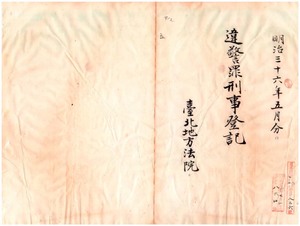 明治三十六年五月分
違警罪刑事登記
臺北地方法院